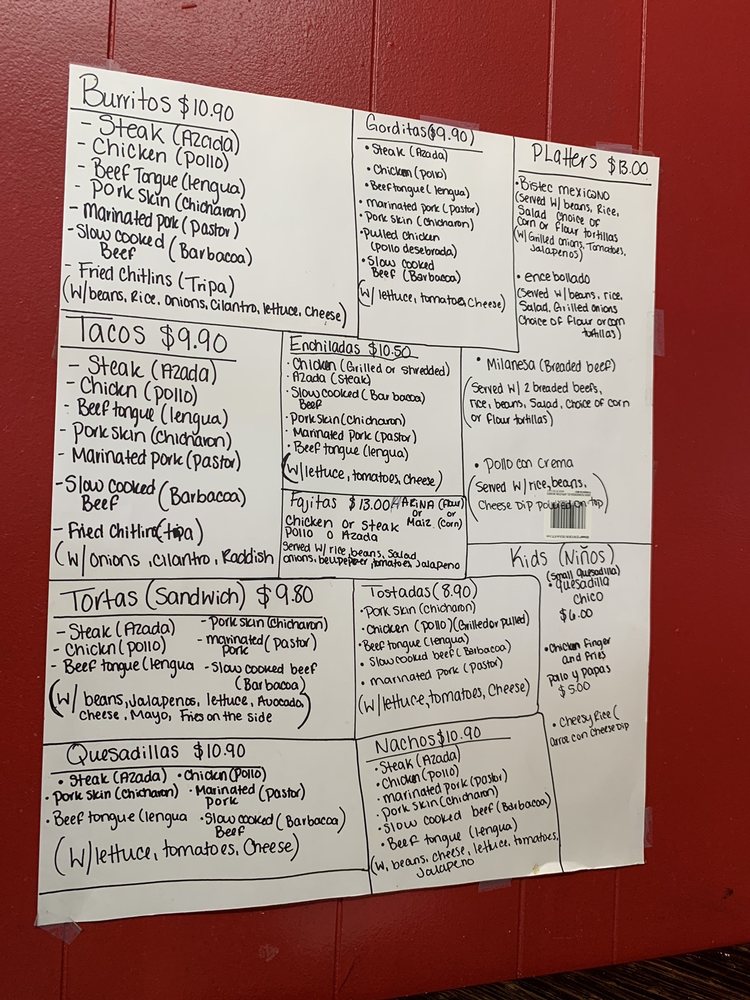 Burritos $10.90
- Steak (Azada)
- Chicken (Pollo)
- Beef Tongue (lengua)
- Pork Skin (Chicharon)
- Marinated Pork (Pastor)
- Slow cooked (Barbacoa)
Beef
- Fried Chitlins (Tripa)
(W/beans, Rice, onions, cilantro, lettuce, Cheese)
Gorditas $9.90)
• Steak (Azada)
• Chicken (pollo)
• Beef tongue (lengua)
• marinated pork (Pastor)
• Pork Skin (Chicharon)
• Pulled Chicken
(Pollo desebrada)
• Slow cooked
Beef (Barbacoa)
(W/ lettuce, tomatoes, Cheese)
Platters $13.00
• Bistec mexicano
(Served W/ beans, Rice,
Salad choice of
Corn or flour tortillas
(W/ Grilled onions, Tomatoes,
Jalapenos)
• encebollado
(Served W/ beans, rice.
Salad, Grilled onions
Choice of Flour or corn
tortillas)
• Milanesa (Breaded beef)
(Served W/ 2 breaded beefs,
rice, beans, Salad, choice of corn
or flour tortillas)
• Pollo con Crema
(Served W/ rice, beans,
Cheese Dip poured on top)
Tacos $9.90
- Steak (Azada)
- Chickn (pollo)
- Beef tongue (lengua)
- Pork Skin (Chicharon)
- Marinated Pork (Pastor)
- Slow cooked (Barbacoa)
Beef
- Fried Chitlin (tripa)
(W/ onions, cilantro, Raddish
Enchiladas $10.50
• Chicken (Grilled or shredded)
• Azada (Steak)
• Slow cooked (Barbacoa)
Beef
• Pork Skin (Chicharon)
• Marinated Pork (Pastor)
• Beef tongue (lengua)
(W/ lettuce, tomatoes, Cheese)
Fajitas $13.00 HARiNA (Flour)
or or
Chicken or Steak Maiz (Corn)
Pollo o Azada
Served W/ rice, beans, Salad
onions, bellpepper, tomatoes, Jalapeno
Kids (Niños)
(Small Quesadilla)
• Quesadilla
Chico
$6.00
• Chicken finger
and fries
pollo y papas
$5.00
• Cheesy Rice (
arroz con Cheese Dip
Tortas (Sandwich) $9.80
- Steak (Azada)
- Chickn (pollo)
- Beef tongue (lengua
- Pork Skin (Chicharon)
- marinated (Pastor)
pork
- Slow cooked beef
(Barbacoa)
(W/ beans, Jalapenos, lettuce, Avocado,
Cheese, Mayo, Fries on the side
Tostadas (8.90)
• Pork Skin (Chicharon)
• Chicken (pollo) (Grilled or pulled)
• Beef tongue (lengua)
• Slow cooked beef (Barbacoa)
• marinated pork (Pastor)
(W/ lettuce, tomatoes, Cheese)
Quesadillas $10.90
• Steak (Azada) • Chickn (Pollo)
• Pork Skin (Chicharon) • Marinated (Pastor)
pork
• Beef tongue (lengua • Slow cooked (Barbacoa)
Beef
(W/ lettuce, tomatoes, Cheese)
Nachos $10.90
• Steak (Azada)
• Chickn (pollo)
• marinated pork (Pastor)
• pork skin (Chicharon)
• Slow cooked beef (Barbacoa)
• Beef tongue (lengua)
(W, beans, cheese, lettuce, tomatoes,
Jalapeno